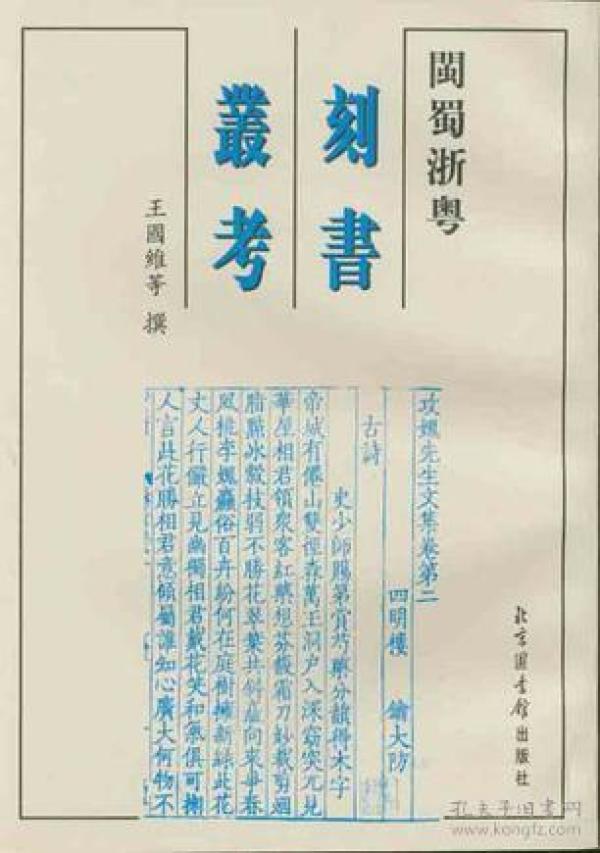 閩蜀浙粵
刻書
叢考
王國維等 撰
攻媿先生文集卷第二
四明樓 鑰大防
古詩
史少師賜第賞芍藥分韻得木字
帝城有僊山雙徑森萬玉洞户入深窈突兀見
華屋相君領衆客紅藥想芬馥霜刀妙裁剪迴
脂點冰縠枝弱不勝花翠葉共斜矗向來爭春
風桃李媿麤俗百卉紛何在庭樹擁新緑此花
丈人行儼立見幽獨相君戴花笑和氣俱可掬
人言此花勝相君意傾屬誰知心廣大何物不
北京圖書館出版社
孔夫子旧書网
www.kongfz.com